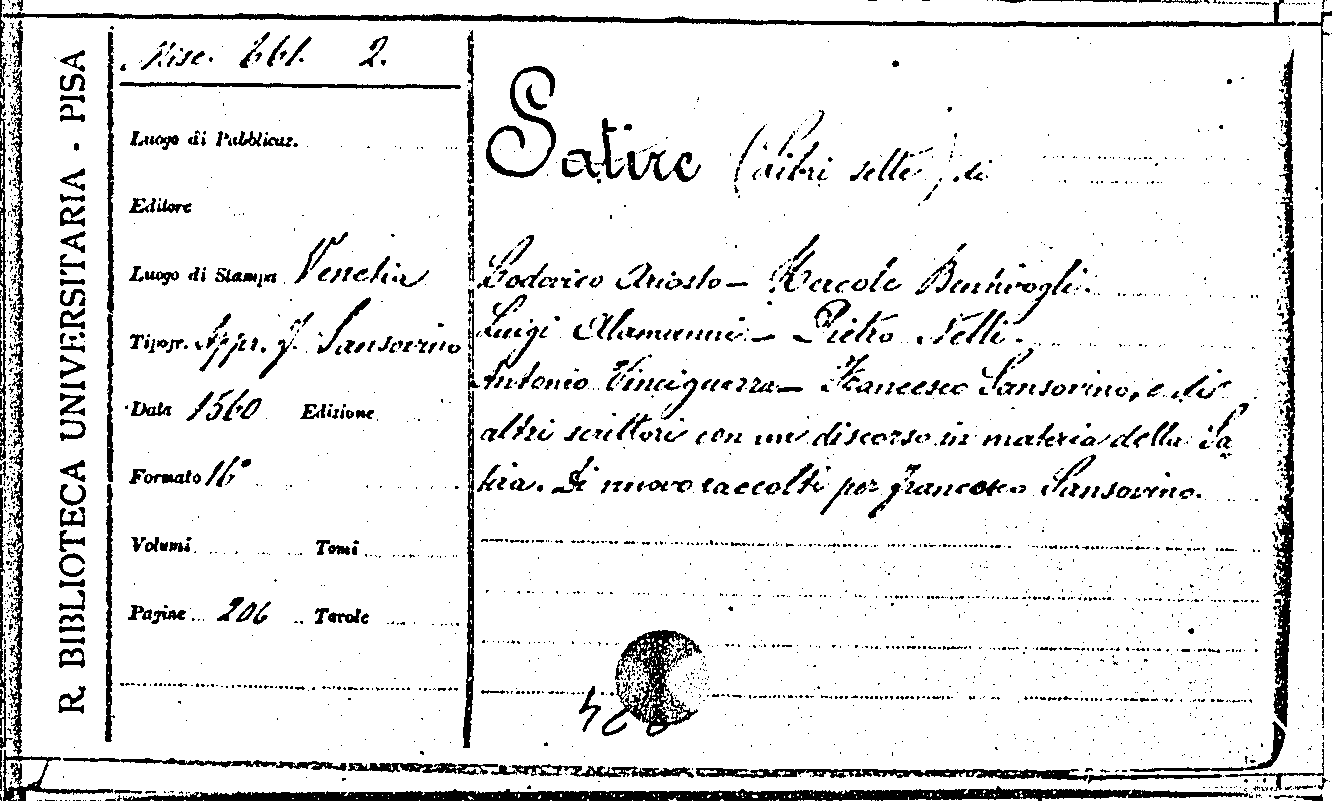 R. BIBLIOTECA UNIVERSITARIA - PISA
Misc. 661. 2.
Luogo di Pubblicaz.
Editore
Luogo di Stampa Venetia
Tipogr. Appr. F. Sansovino
Data 1560 Edizione
Formato 16°
Volumi Tomi
Pagine 206 Tavole
Satire (Libri sette) di
Lodovico Ariosto - Hercole Bentivogli.
Luigi Alamanni - Pietro Nelli.
Antonio Vinciguerra - Francesco Sansovino, e di
altri scrittori con un discorso in materia della Sa
tira. Di nuovo raccolti per Francesco Sansovino.